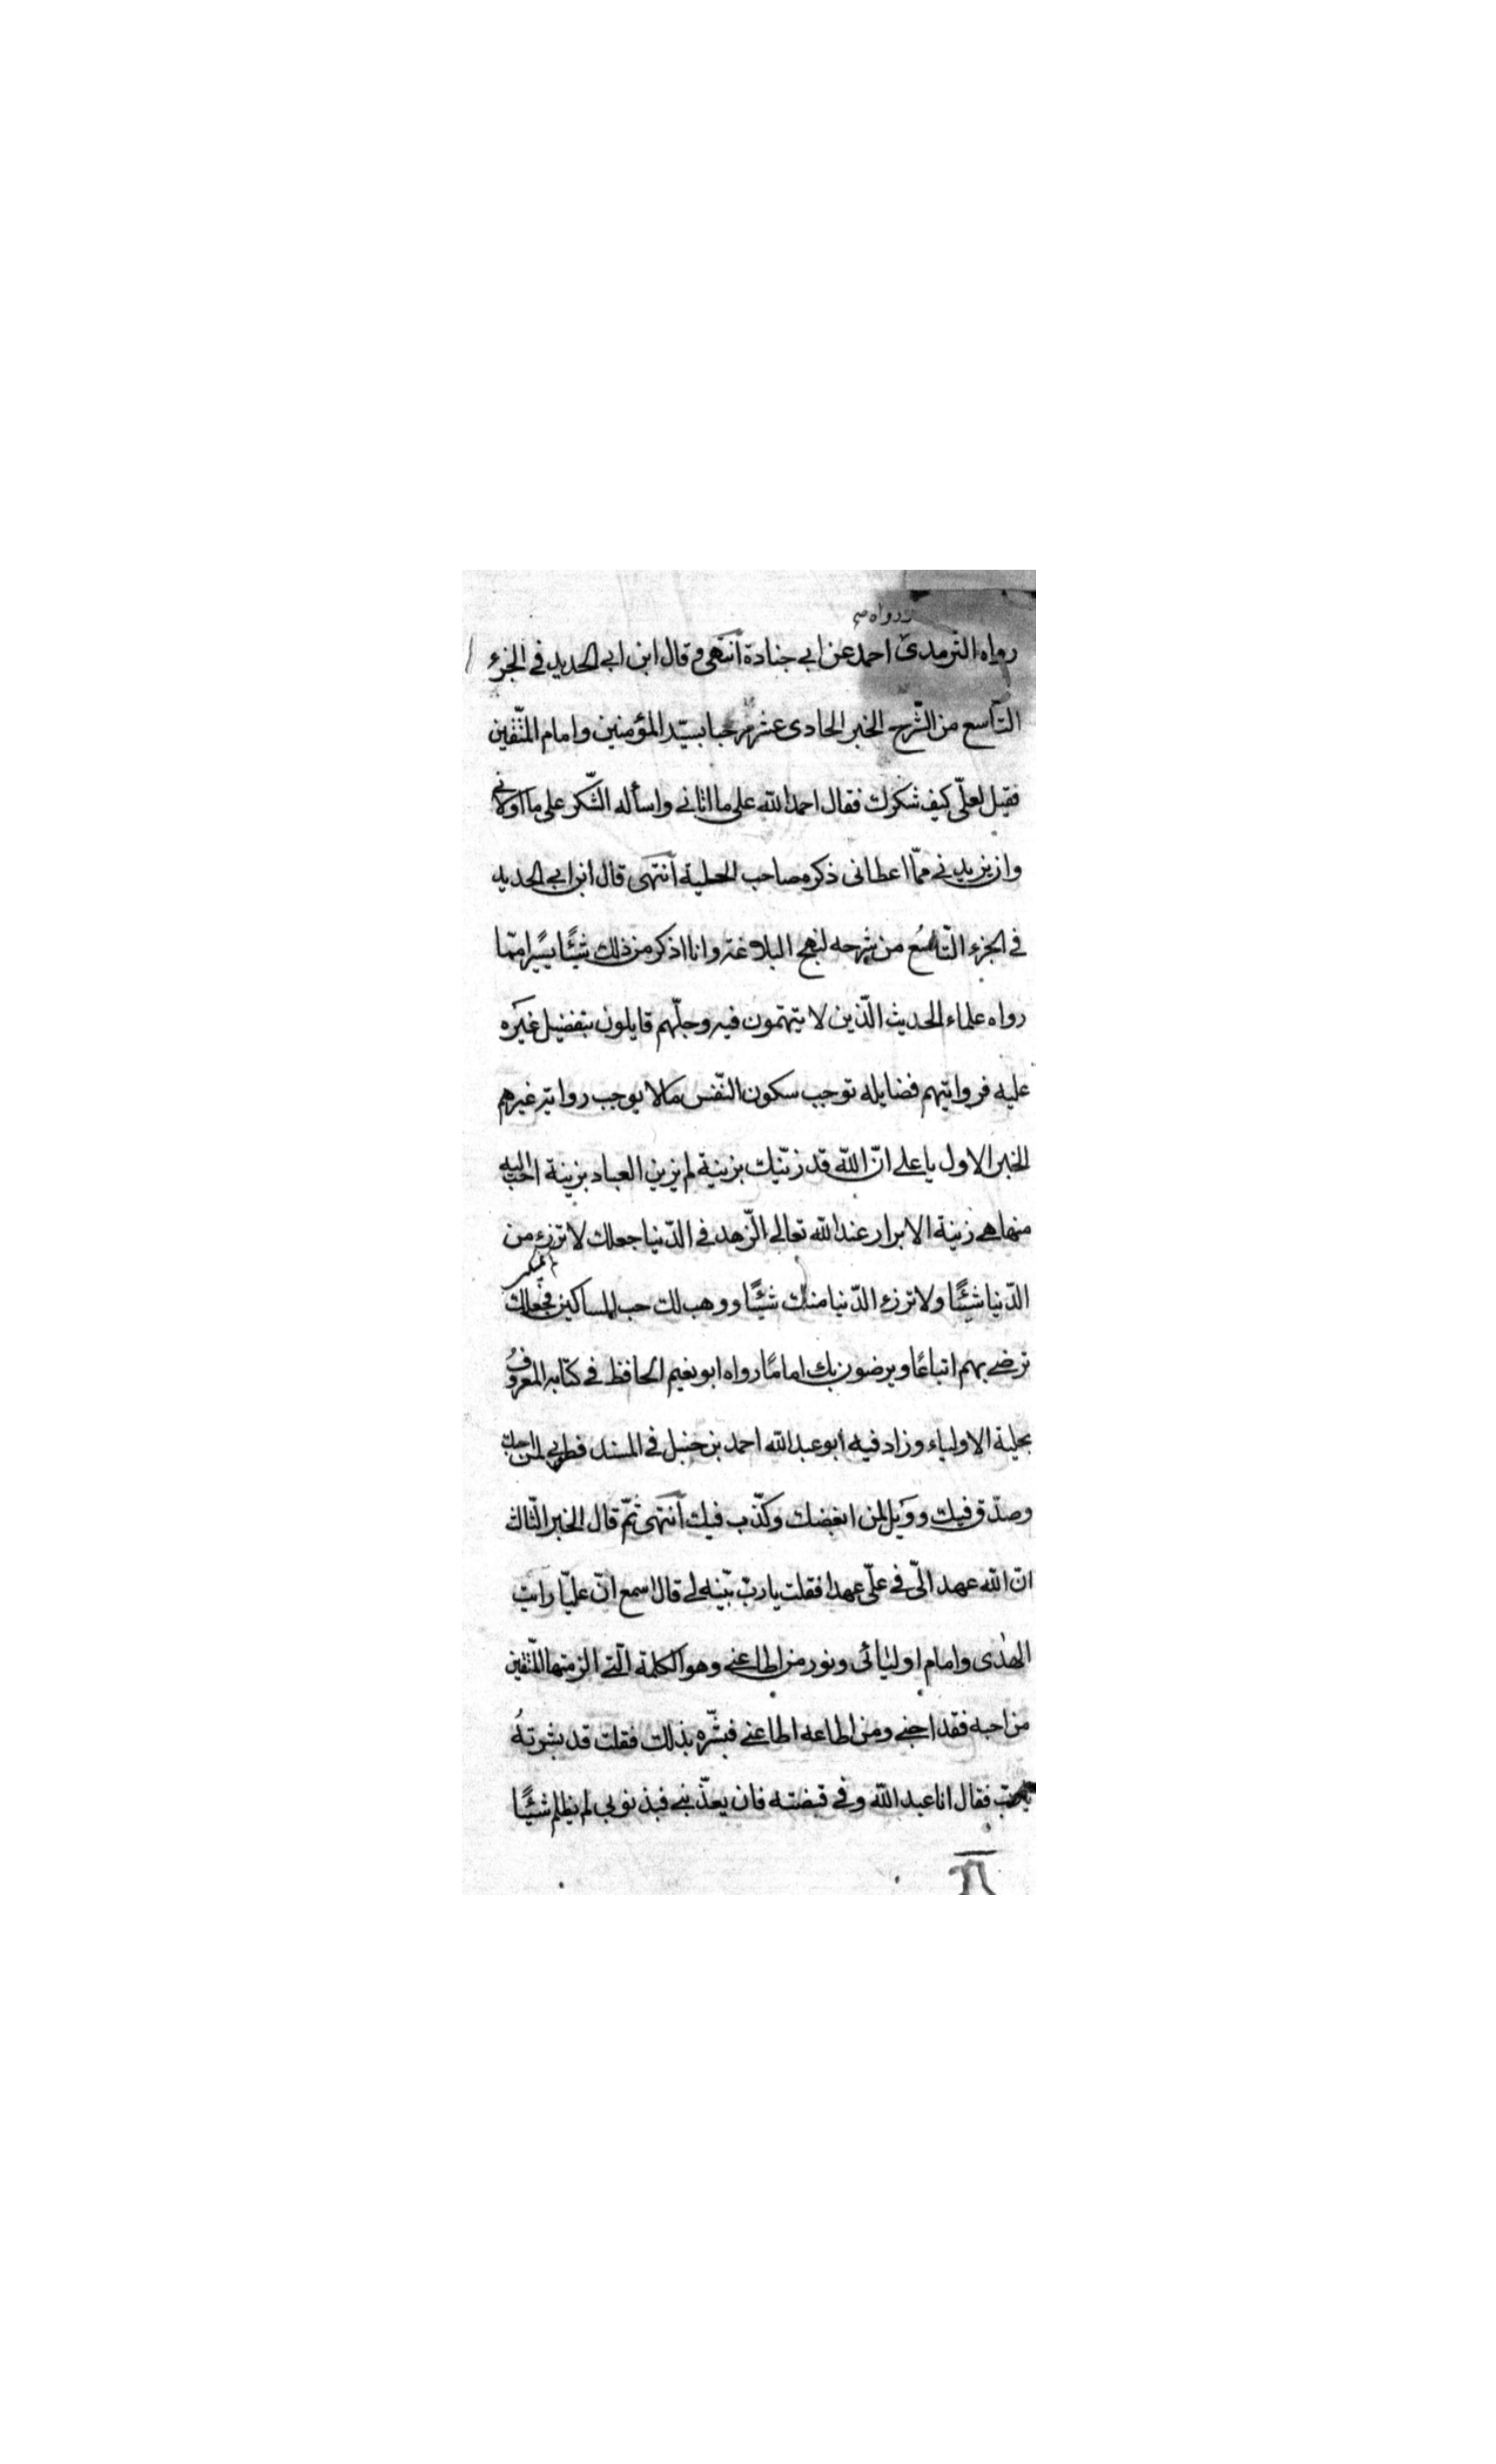 ورواه
رواه الترمدى احمد عن ابي جنادة انتهى وقال ابن ابي الحديد في الجزء
التاسع من الشّرح الخبر الحادى عشر مرحبا بسيّد المؤمنين وامام المتّقين
فقيل لعلّي كيف شكرك فقال احمد الله على ما اتانے واسأله الشّكر على ما اولانے
وان يزيدنے ممّا اعطانى ذكره صاحب الحلية انتهى قال ابن ابي الحديد
في الجزء التّاسع من شرحه لنهج البلاغة وانا اذكر من ذلك شيئًا يسيًرا ممّا
رواه علماء الحديث الّذين لا يتّهمون فيه وجلّهم قايلون بتفضيل غيره
عليه فروايتهم فضايله توجب سكون النّفس ما لا يوجب رواية غيرهم
الخبر الاول يا علي انّ الله قد زيّنك بزينة لم يزين العباد بزينة احبّ اليه
منها هي زينة الابرار عند الله تعالى الزّهد في الدّنيا جعلك لا ترزء من
الدّنيا شيئًا ولا ترزء الدّنيا منك شيئًا ووهب لك حب المساكين فجعلك
ترضى بهم اتباعًا ويرضون بك امامًا رواه ابو نعيم الحافظ في كتابه المعروف
بحلية الاولياء وزاد فيه ابو عبد الله احمد بن حنبل في المسند فطوبي لمن احبك
وصدّق فيك وويل لمن ابغضك وكذّب فيك انتهى ثمّ قال الخبر الثّالث
انّ الله عهد الىّ في علّي عهدا فقلت يا ربّ بيّنه لي قال اسمع انّ عليّا رايت
الهدى وامام اوليائى ونور من اطاعنے وهو الكلمة الّتے الزمتها المتّقين
من احبه فقد احبنے ومن اطاعه اطاعنے فبشّره بذلك فقلت قد بشرتهُ
يا ربّ فقال انا عبد الله وفي قبضته فان يعذّبنے فبذنوبي لم يظلم شيئًا